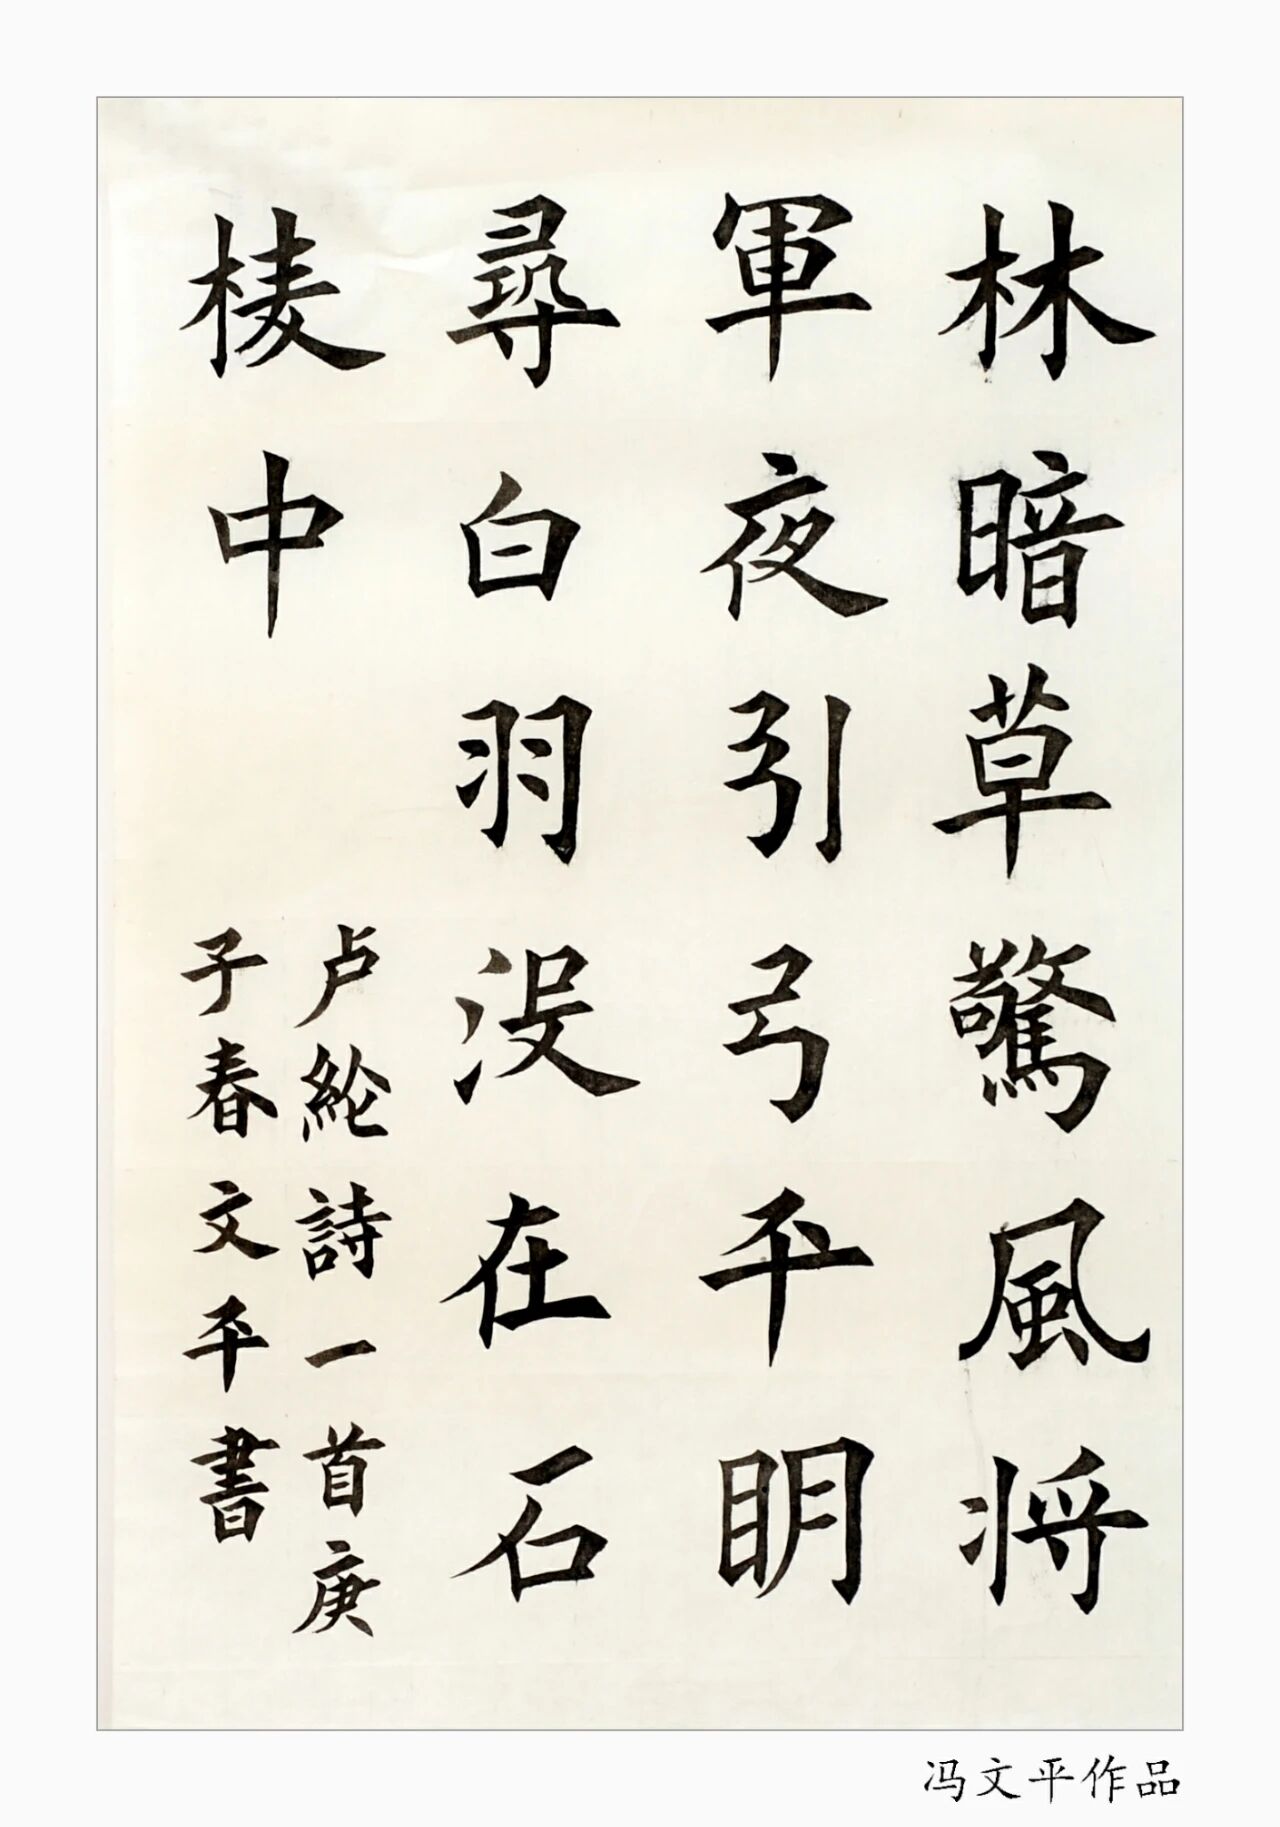 林暗草驚風将
軍夜引弓平明
尋白羽没在石
棱中
卢綸詩一首庚
子春文平書
冯文平作品